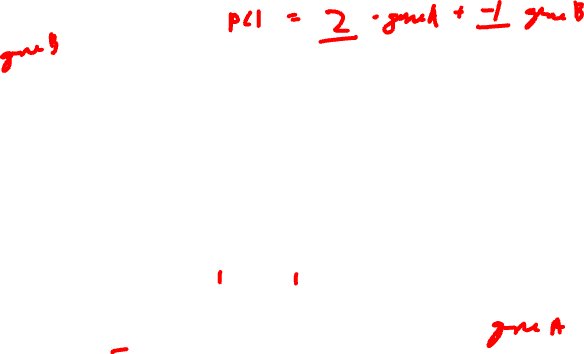 PC1 = 2 · gene A + -1 gene B
gene B
gene A